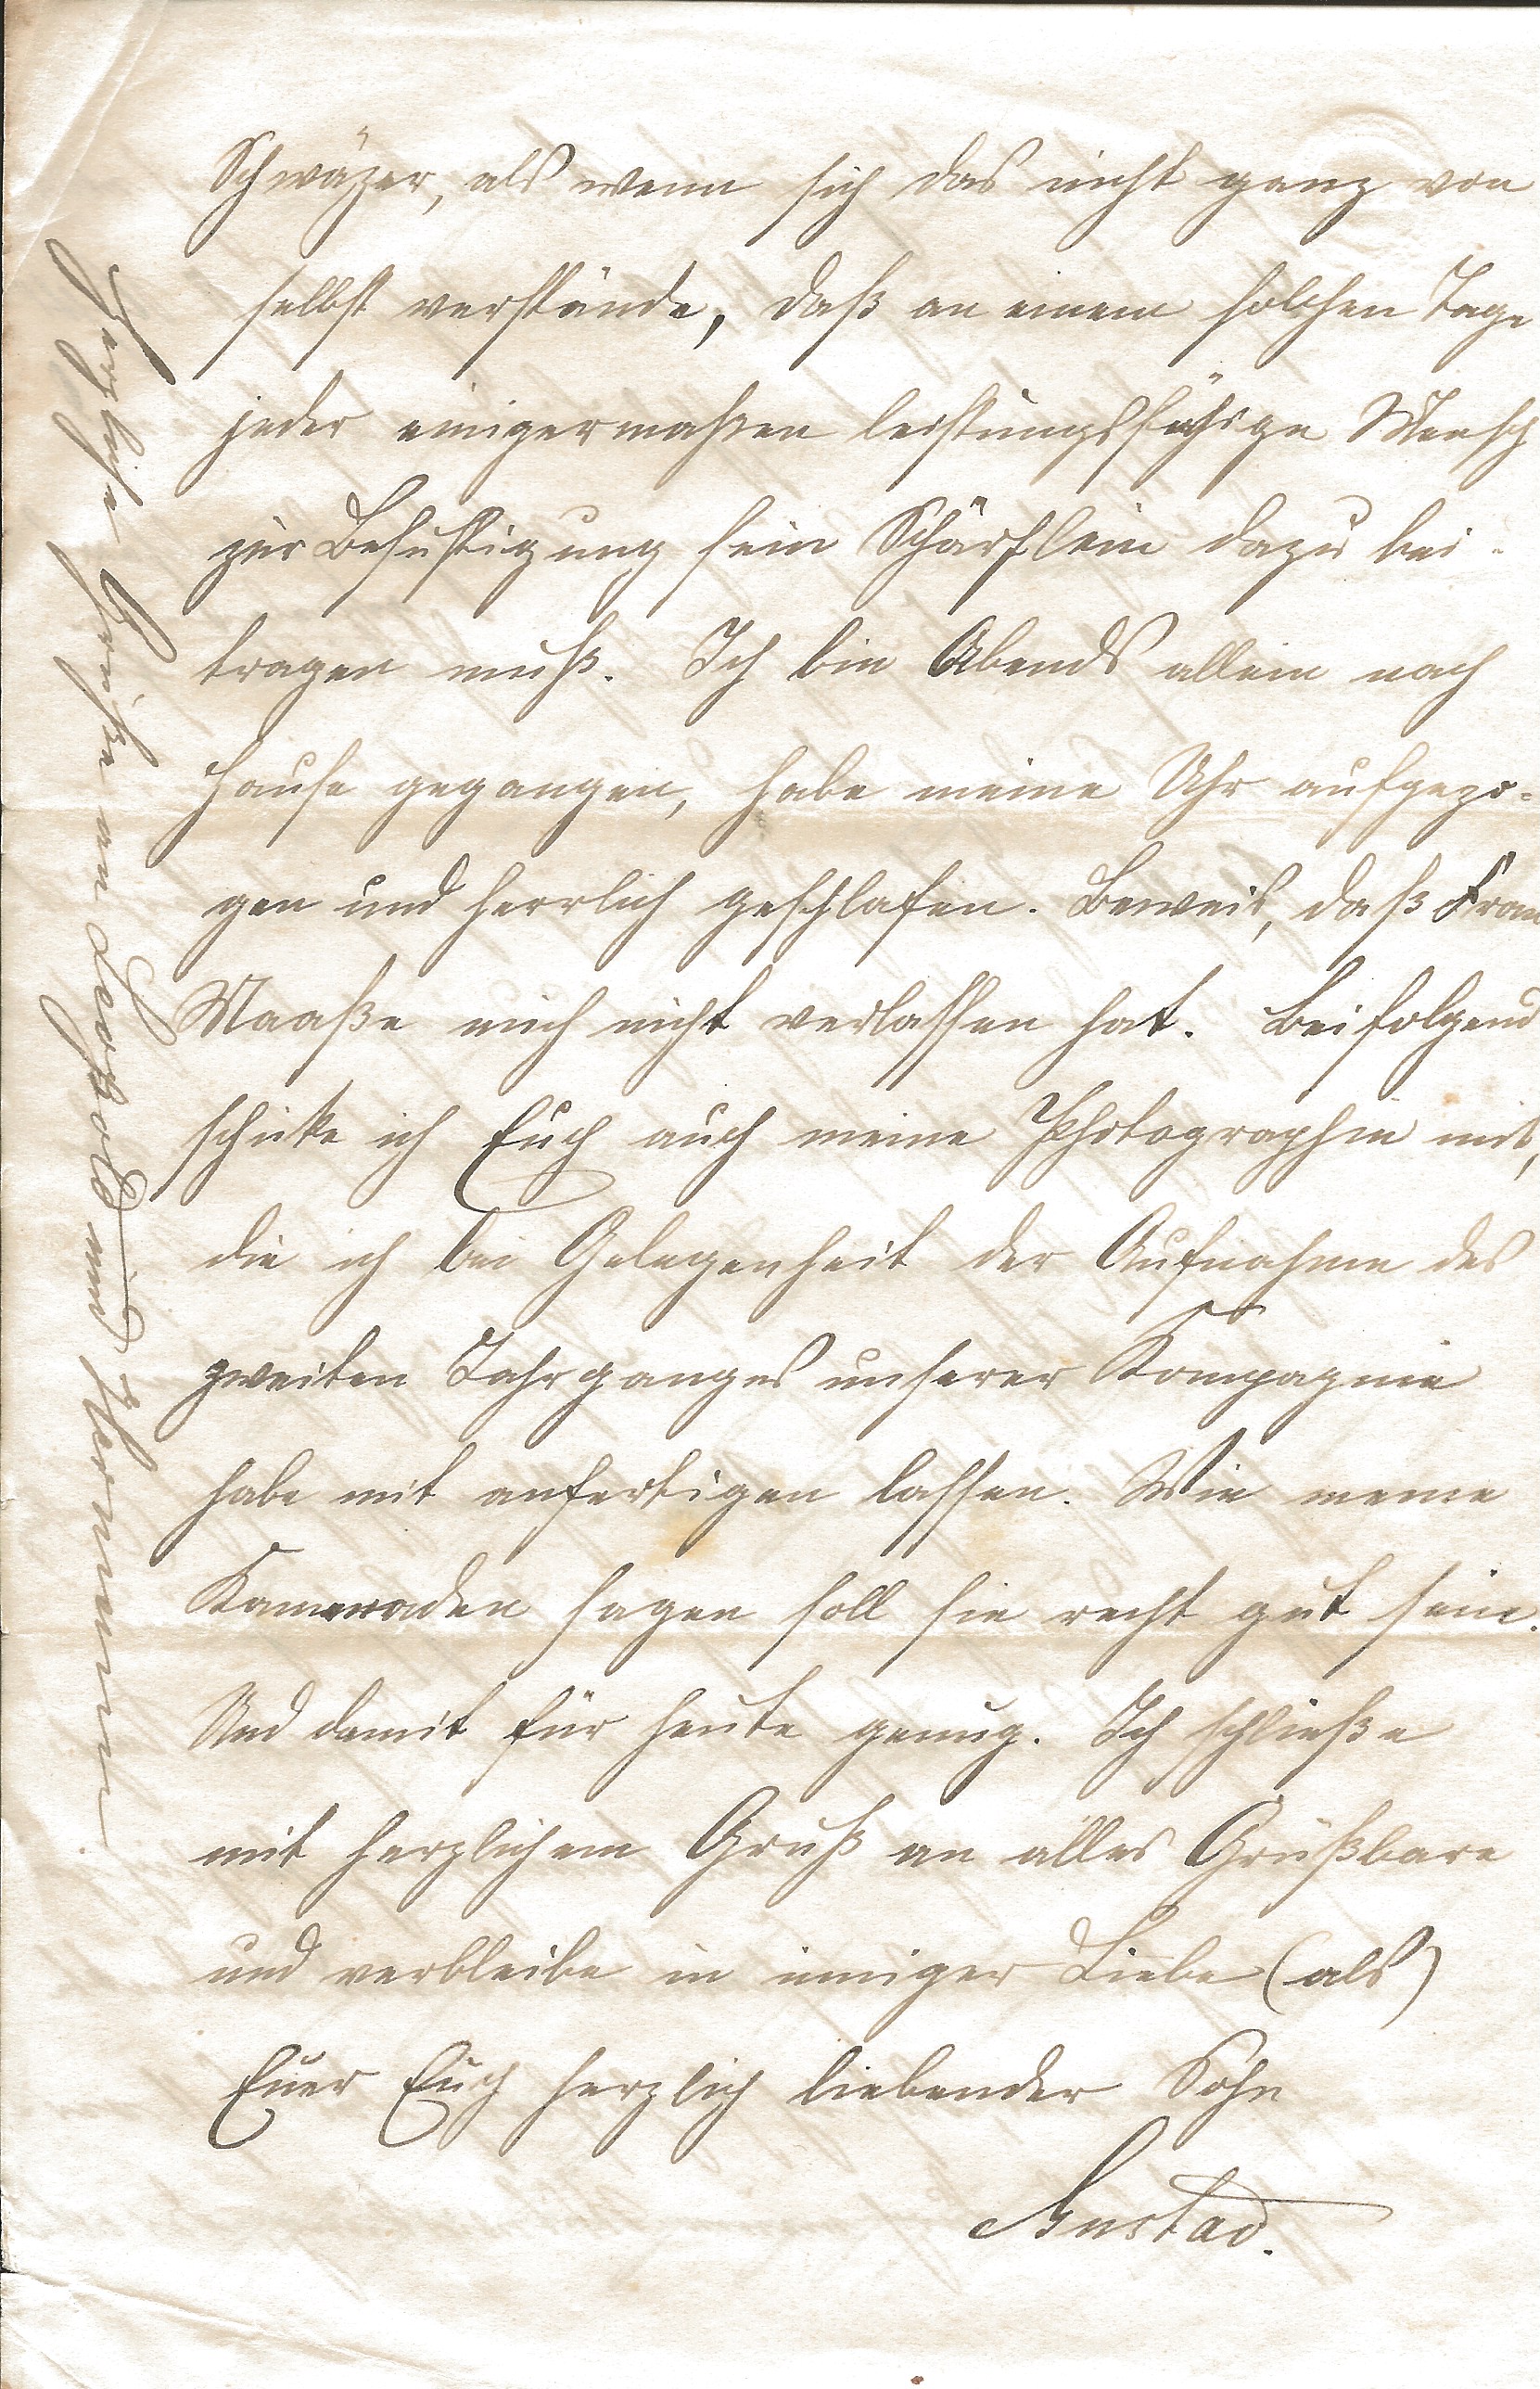 Schwäzer, als wenn sich das nicht ganz von
selbst verstände, daß an einem solchen Tage
jeder einigermaßen leistungsfähige Mensch
zur Belustigung sein Schärflein dazu bei-
tragen muß. Ich bin Abends allein nach
Hause gegangen, habe meine Uhr aufgezo-
gen und herrlich geschlafen. Beweis, daß Frau
Maaße mich nicht verlassen hat. Beifolgend
schicke ich Euch auch meine Photographie mit,
die ich bei Gelegenheit der Aufnahme des
zweiten Jahrganges unserer Kompagnie
habe mit anfertigen lassen. Wie meine
Kameraden sagen soll sie recht gut sein.
Und damit für heute genug. Ich schließe
mit herzlichem Gruß an alles Grüßbare
und verbleibe in inniger Liebe (als)
Euer Euch herzlich liebender Sohn
Gustav.
Herzliche Grüße an Leopold und Hermann